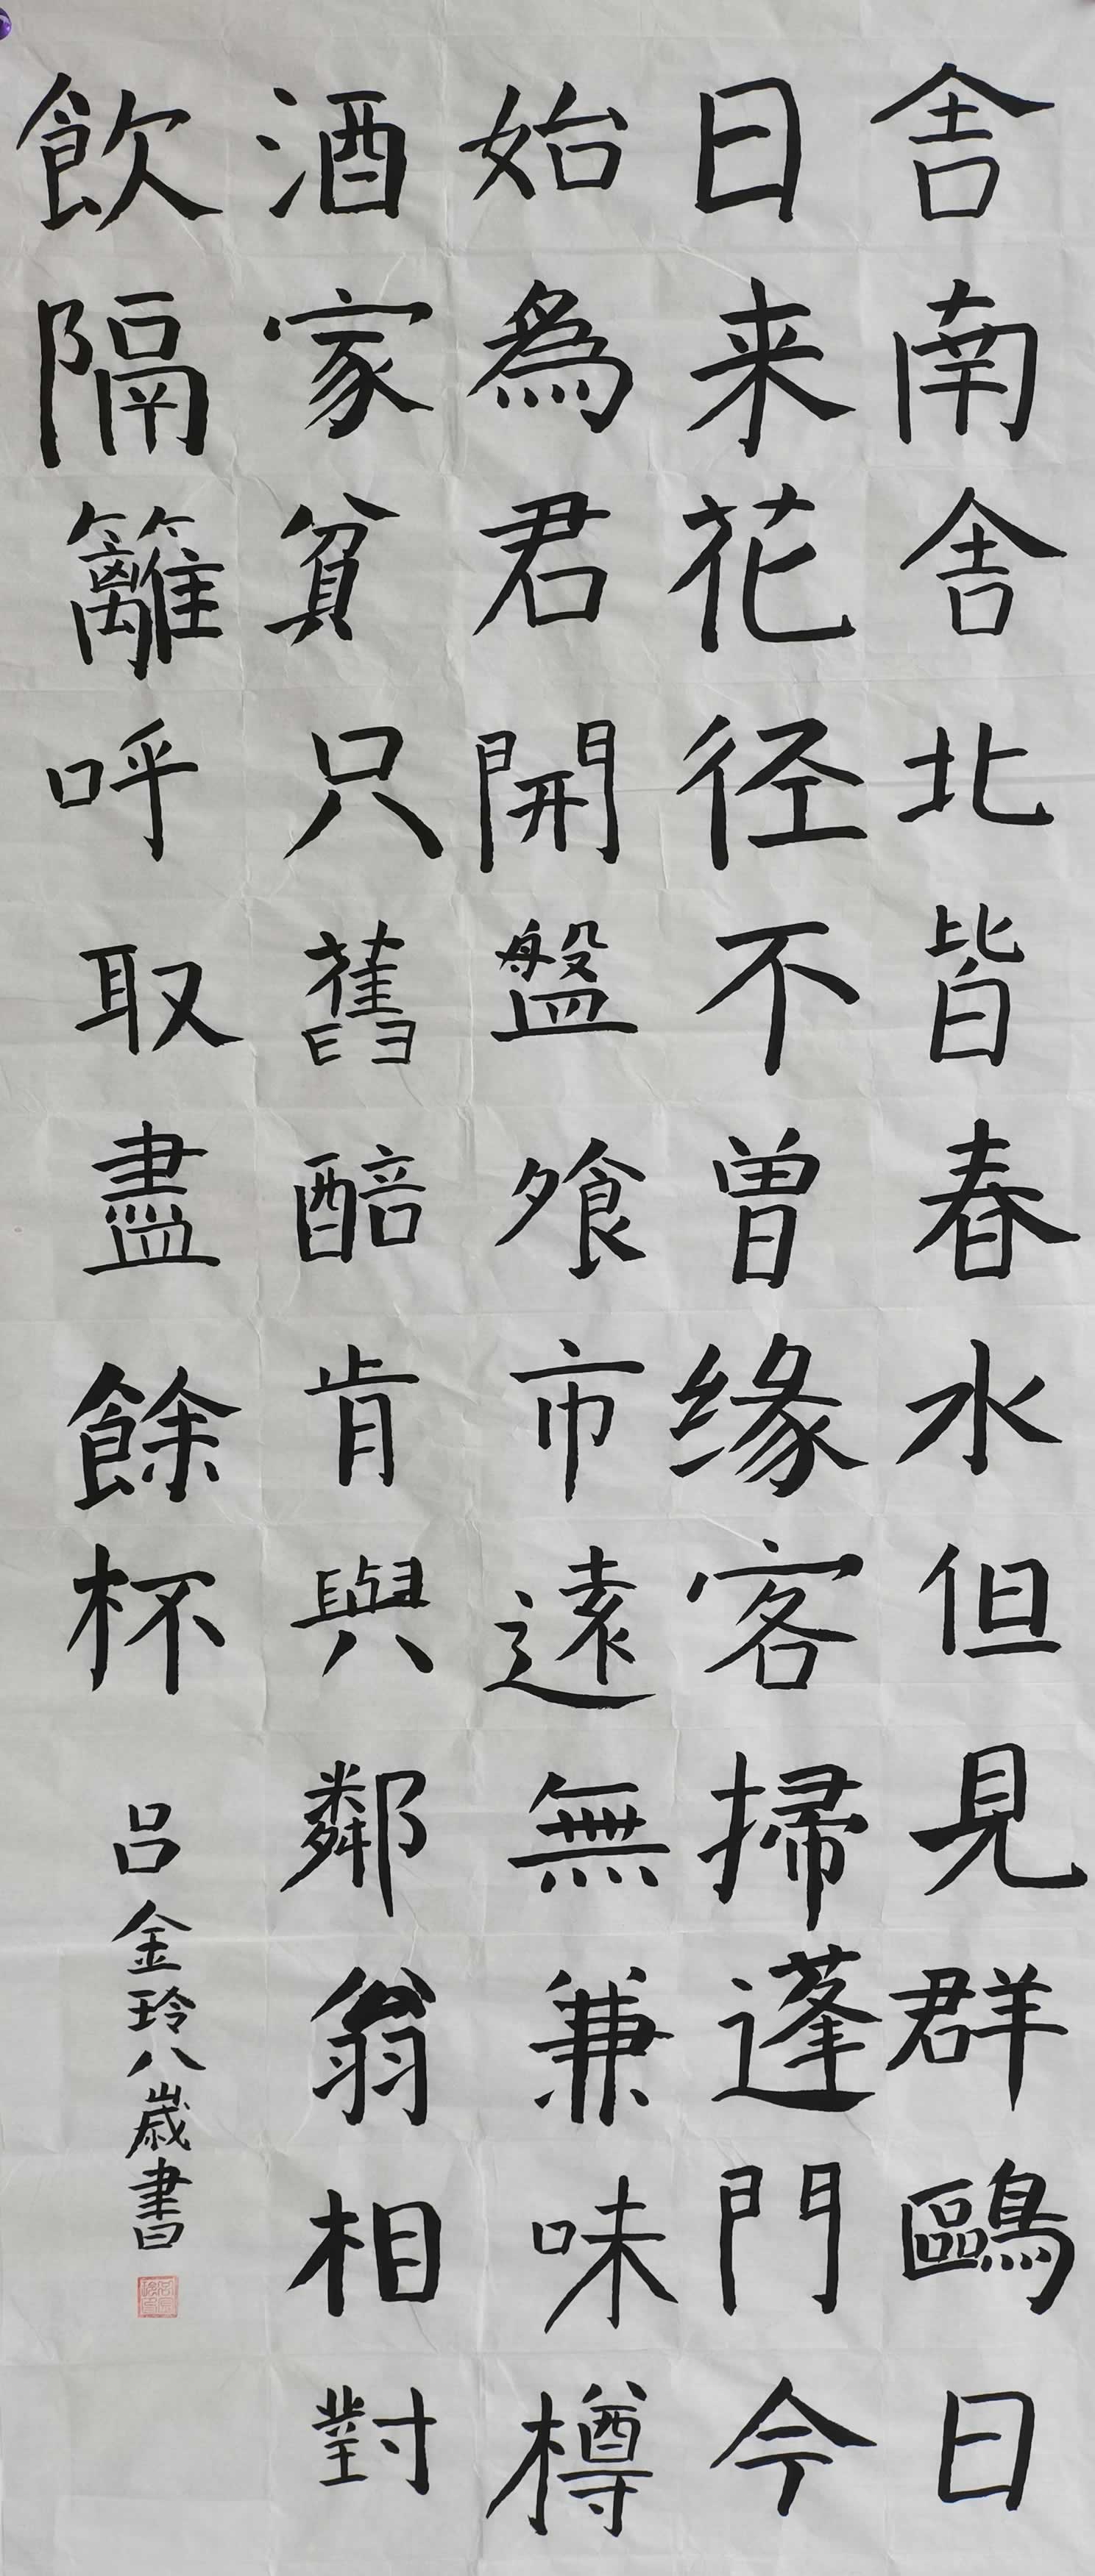 舎南舎北皆春水但見群鷗日
日来花径不曽缘客掃蓬門今
始為君開盤飧市遠無兼味樽
酒家貧只舊醅肯與鄰翁相對
飲隔籬呼取盡餘杯
吕金玲八歲書